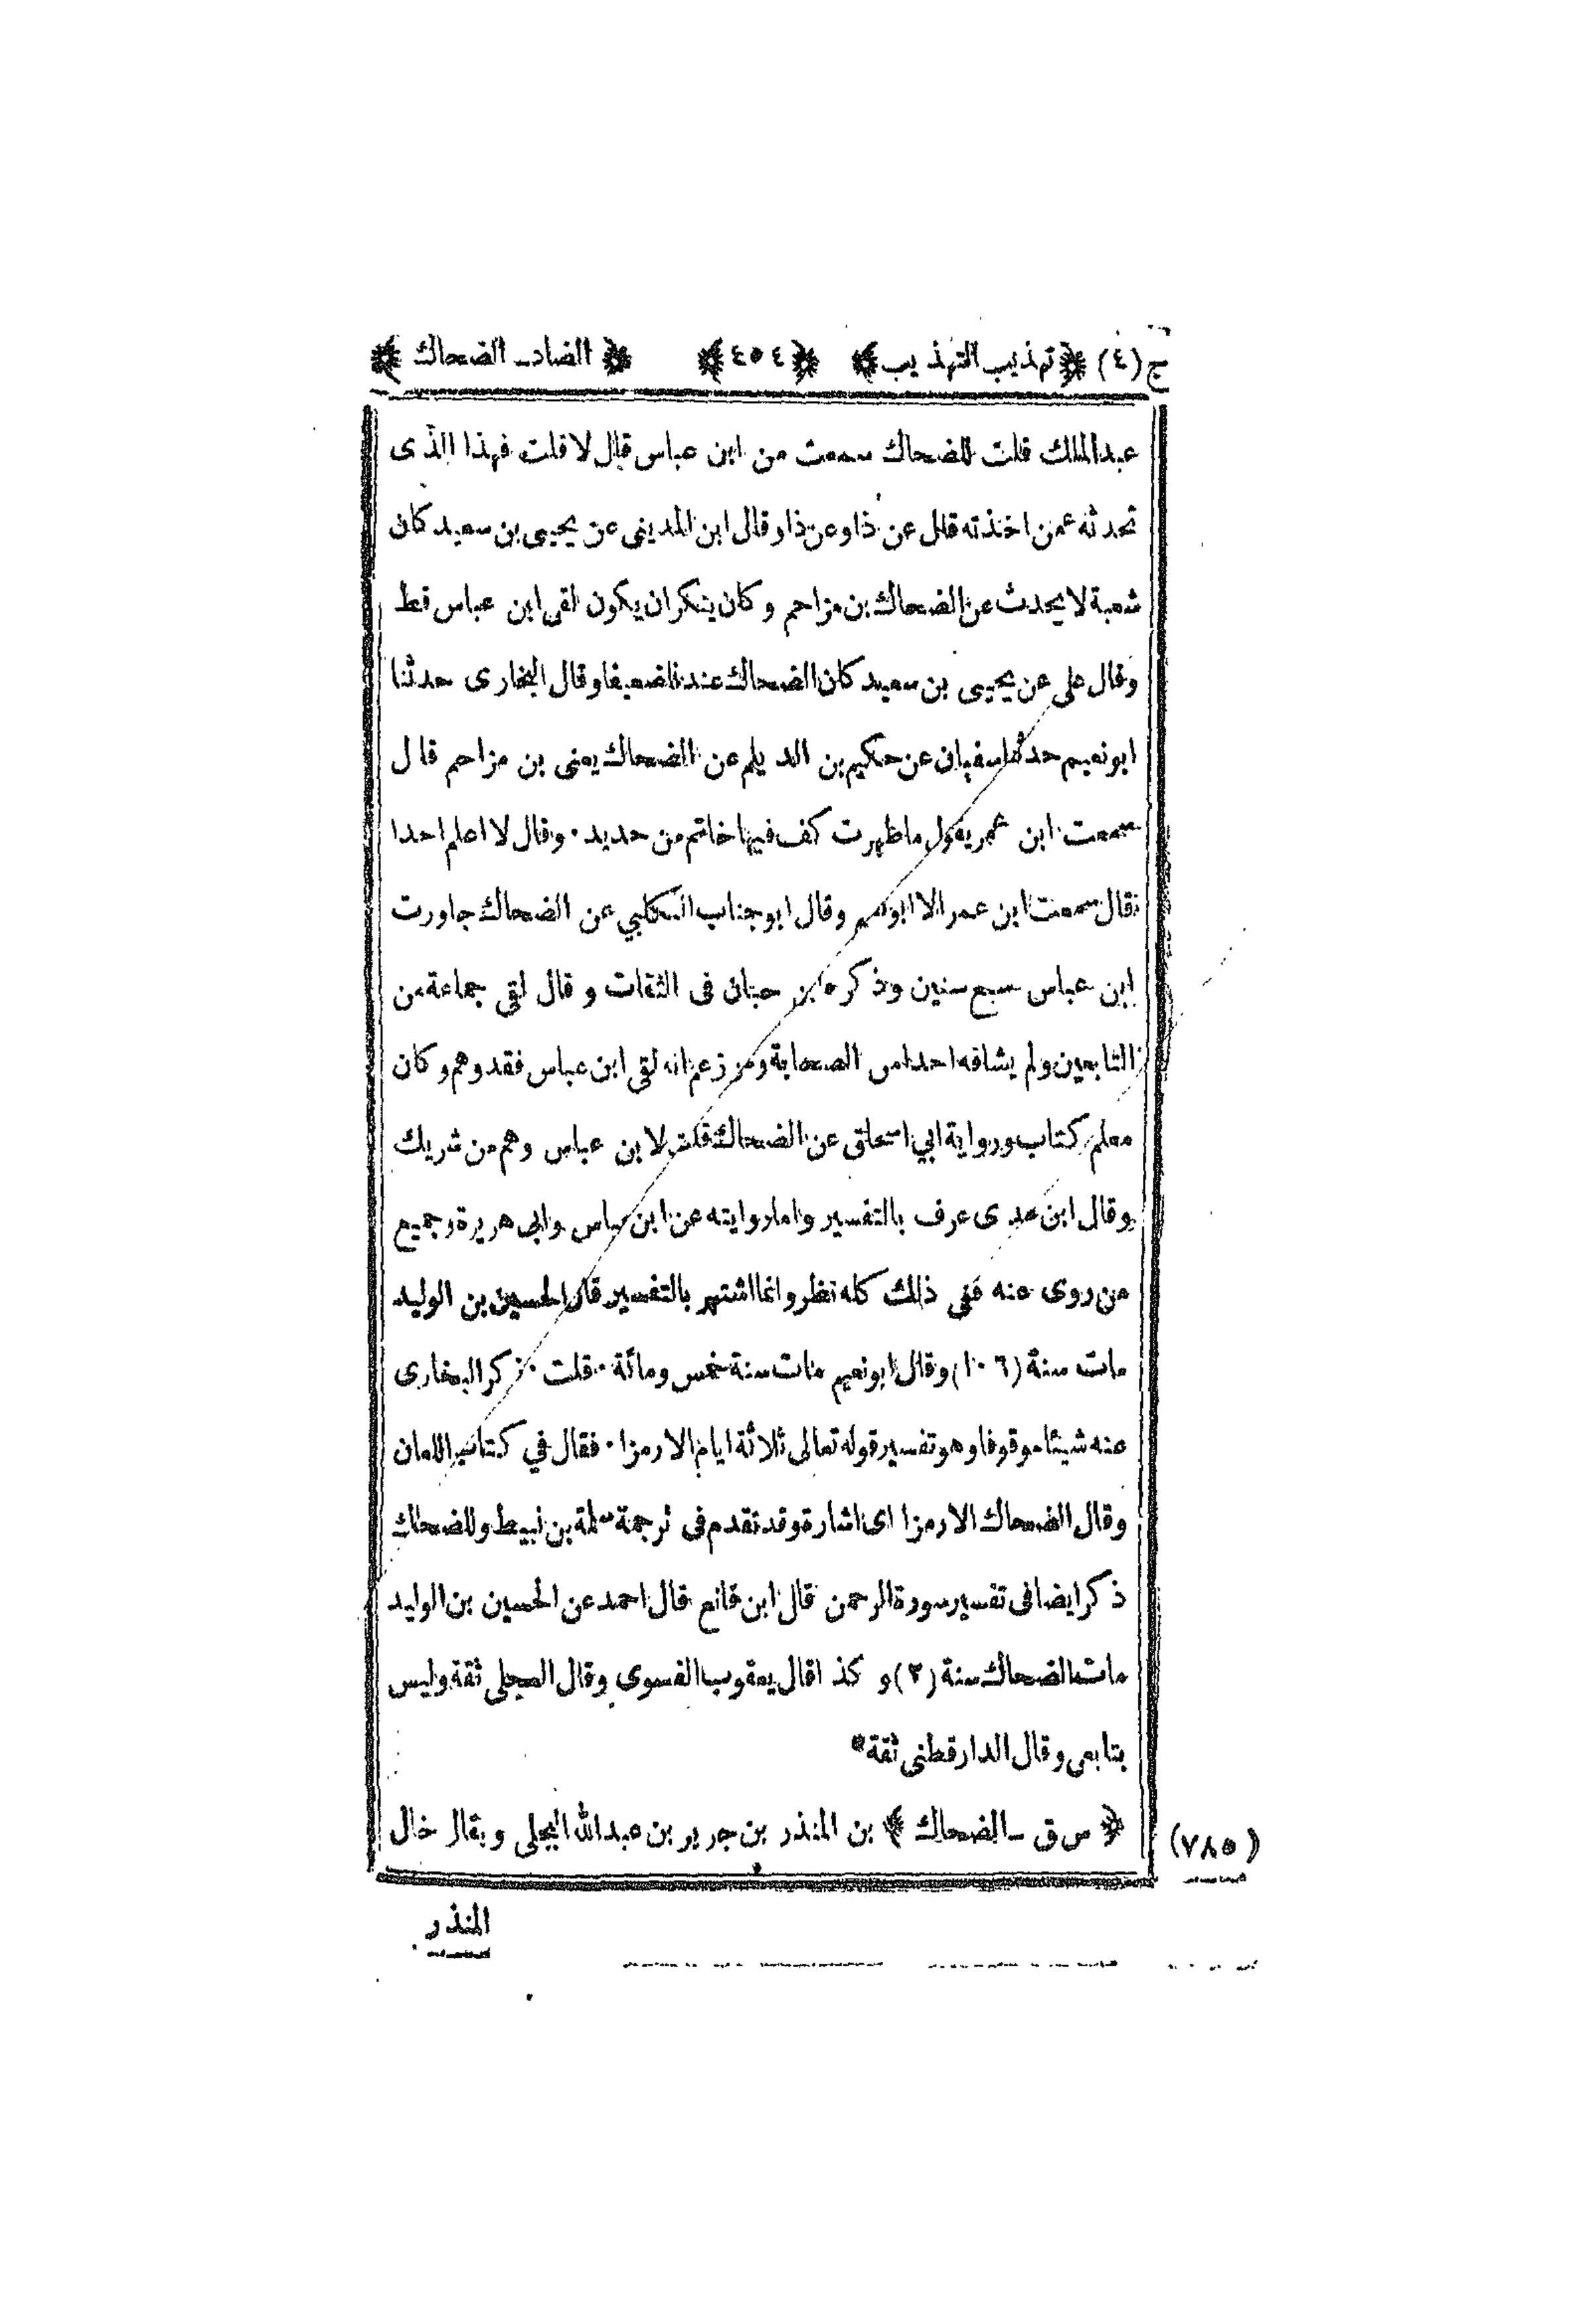 ج (٤) ﴿تهذيب التهذيب﴾ ﴿٤٥٤﴾ ﴿الضاد ـ الضحاك﴾
عبدالملك قلت للضحاك سمعت من ابن عباس قال لا قلت فهذا الذى
تحدثه عمن اخذته قال عن ذا وعن ذا وقال ابن المدينى عن يحيى بن سعيد كان
شعبة لا يحدث عن الضحاك بن مزاحم وكان ينكر ان يكون لقى ابن عباس قط
وقال على عن يحيى بن سعيد كان الضحاك عندنا ضعيفا وقال البخارى حدثنا
ابو نعيم حدثنا سفيان عن حكيم بن الديلم عن الضحاك يعنى بن مزاحم قال
سمعت ابن عمر يقول ما ظهرت كف فيها خاتم من حديد٠ وقال لا اعلم احدا
قال سمعت ابن عمر الا ابو نعيم وقال ابو جناب الكلبي عن الضحاك جاورت
ابن عباس سبع سنين وذكره ابن حبان فى الثقات وقال لقى جماعة من
التابعين ولم يشافه احدا من الصحابة ومن زعم انه لقى ابن عباس فقد وهم وكان
معلم كتاب ورواية ابي اسحاق عن الضحاك قلت لابن عباس وهم من شريك
وقال ابن عدى عرف بالتفسير واما روايته عن ابن عباس وابى هريرة وجميع
من روى عنه ففى ذلك كله نظر وانما اشتهر بالتفسير قال الحسين بن الوليد
مات سنة (١٠٦) وقال ابو نعيم مات سنة خمس ومائة٠ قلت٠ ذكر البخارى
عنه شيئا موقوفا وهو تفسير قوله تعالى ثلاثة ايام الا رمزا٠ فقال في كتاب اللعان
وقال الضحاك الا رمزا اى اشارة وقد تقدم فى ترجمة سلمة بن نبيط وللضحاك
ذكر ايضا فى تفسير سورة الرحمن قال ابن قانع قال احمد عن الحسين بن الوليد
مات الضحاك سنة (٢) وكذا قال يعقوب الفسوى وقال العجلى ثقة وليس
بتابعى وقال الدارقطنى ثقة*
(٧٨٥) ﴿س ق ـ الضحاك﴾ بن المنذر بن جرير بن عبدالله البجلى ويقال خال
المنذر